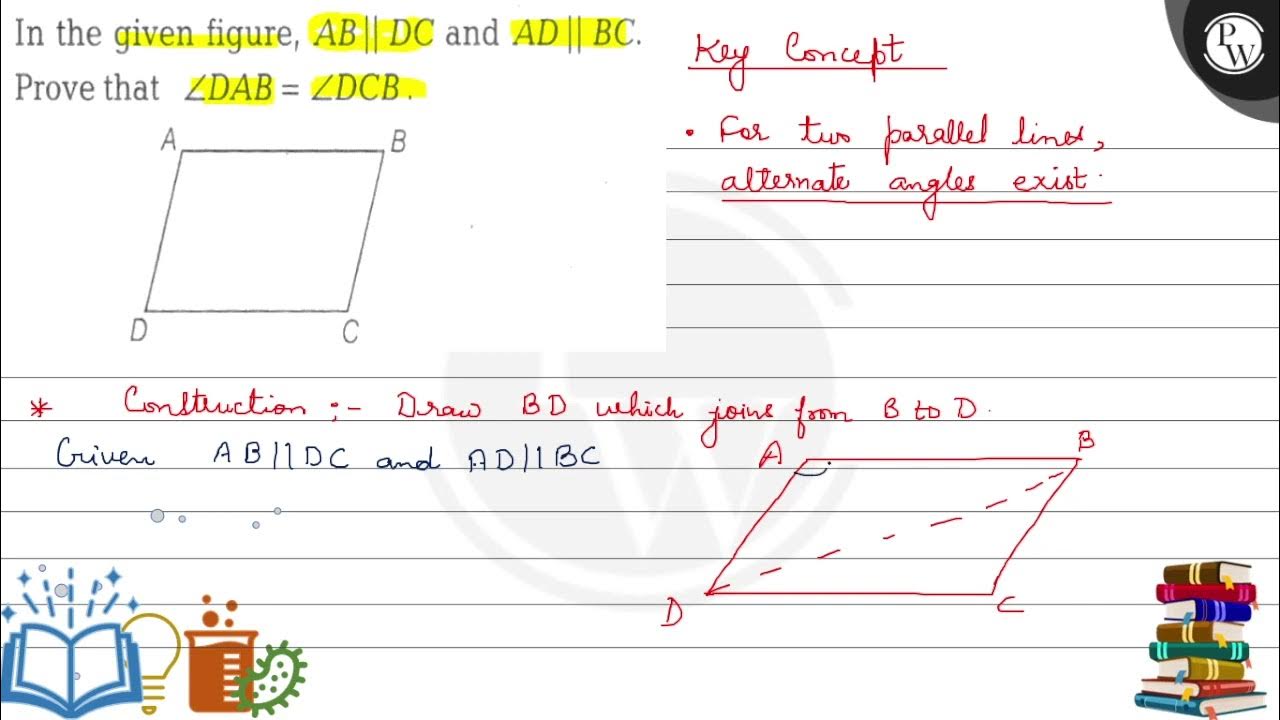 In the given figure, AB || DC and AD || BC.
Prove that ∠DAB = ∠DCB.
A
B
D
C
Key Concept
• For two parallel lines,
alternate angles exist.
PW
* Construction :- Draw BD which joins from B to D.
Given AB||DC and AD||BC
A
B
D
C